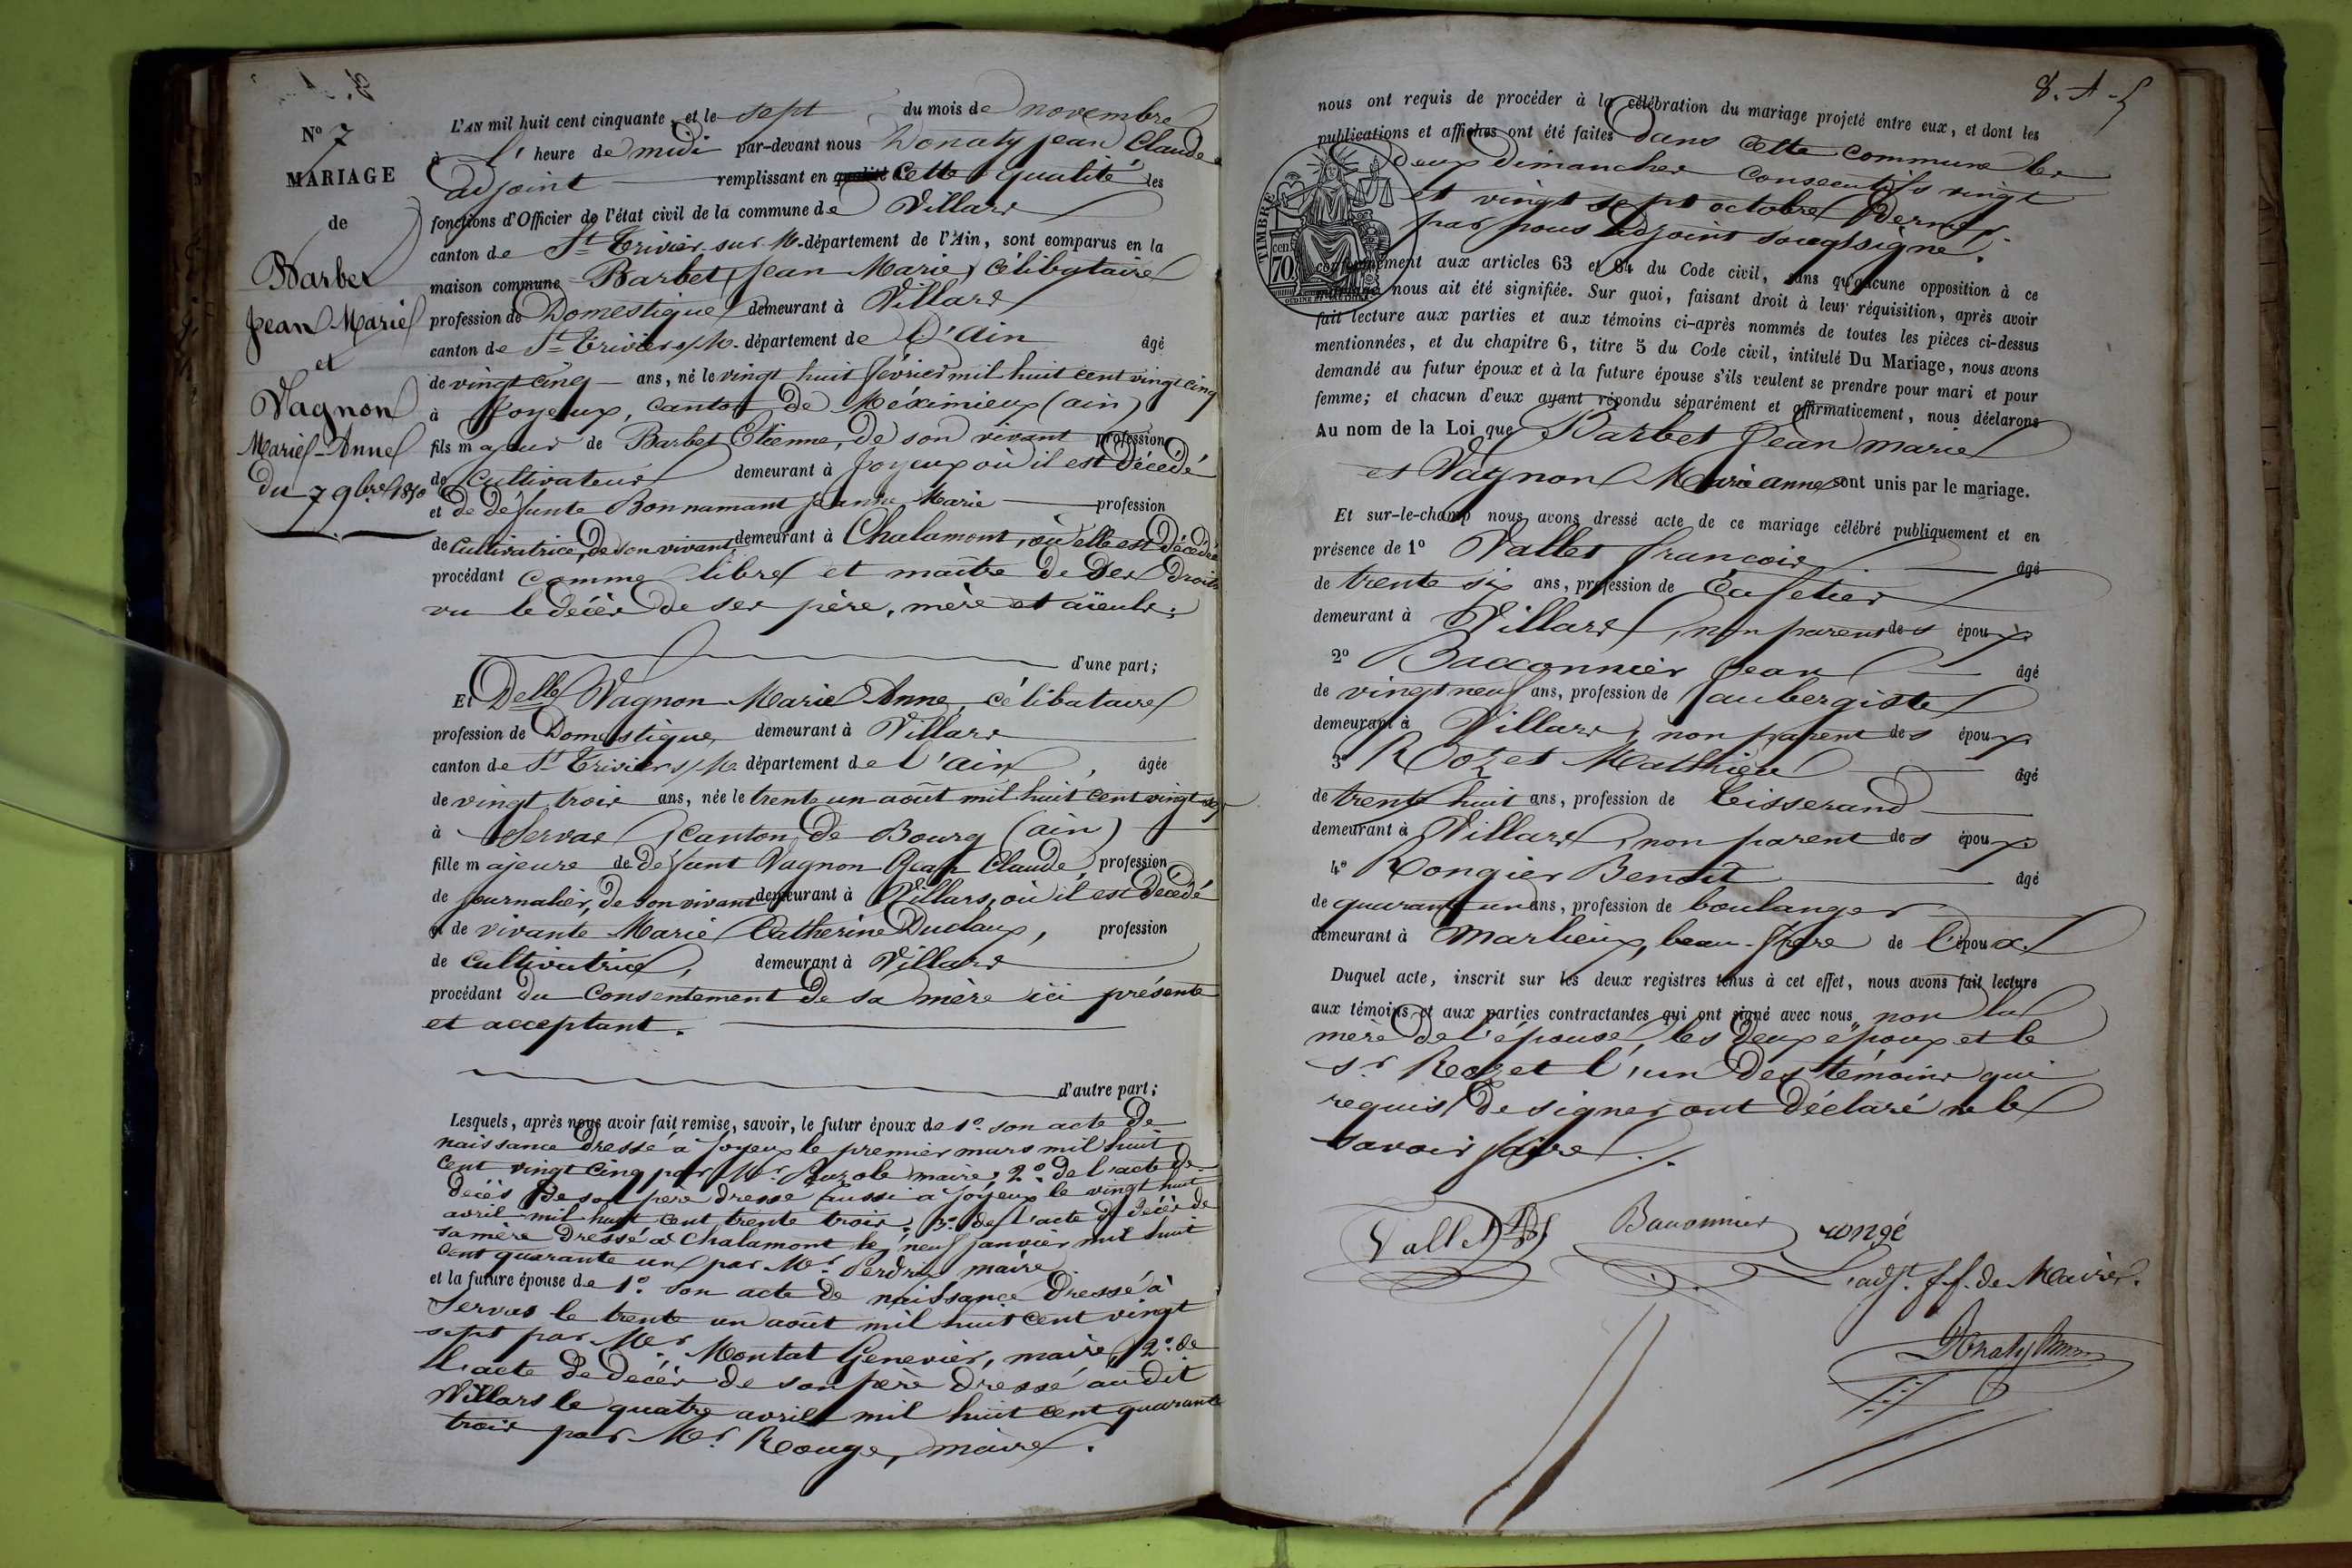 N° 7
MARIAGE
de
Barbet
Jean Marie
et
Vagnon
Marie-Anne
du 7 9bre 1850
L'AN mil huit cent cinquante, et le sept du mois de novembre
à l' heure de midi par-devant nous Donaty Jean Claude
adjoint remplissant en qualité cette qualité les
fonctions d'Officier de l'état civil de la commune de Villars
canton de St Trivier sur M. département de l'Ain, sont comparus en la
maison commune Barbet Jean Marie, célibataire
profession de Domestique demeurant à Villars
canton de St Trivier s/M. département de L'Ain âgé
de vingt cinq ans, né le vingt huit février mil huit cent vingt cinq
à Joyeux, canton de Méximieux (ain)
fils majeur de Barbet Etienne, de son vivant profession
de Cultivateur demeurant à Joyeux où il est décédé
et de défunte Bonnamant Jeanne Marie profession
de Cultivatrice, de son vivant, demeurant à Chalamont, où elle est décédée
procédant comme libre et maître de ses droits
vu le décès de ses père, mère et aïeuls;
d'une part;
Et Delle Vagnon Marie Anne, célibataire
profession de Domestique, demeurant à Villars
canton de St Trivier s/M. département de l'ain, âgée
de vingt trois ans, née le trente un août mil huit cent vingt sept
à Servas (canton de Bourg (ain)
fille majeure de défunt Vagnon Jean Claude, profession
de journalier, de son vivant demeurant à Villars, où il est décédé
et de vivante Marie Catherine Duclaux, profession
de cultivatrice, demeurant à Villars
procédant du consentement de sa mère ici présente
et acceptant.
d'autre part;
Lesquels, après nous avoir fait remise, savoir, le futur époux de 1°. son acte de
naissance dressé à Joyeux le premier mars mil huit
cent vingt cinq par Mr. maire; 2°. de l'acte de
décès de son père dressé aussi à Joyeux le vingt huit
avril mil huit cent trente trois; 3°. de l'acte de décès de
sa mère dressé à Chalamont le neuf janvier mil huit
cent quarante un par Mr. Perdrix maire
et la future épouse de 1°. son acte de naissance dressé à
Servas le trente un août mil huit cent vingt
sept par Mr. Montat Genevier, maire, 2°. de
l'acte de décès de son père dressé au dit
Villars le quatre avril mil huit cent quarante
trois par Mr. Rouge, maire.
nous ont requis de procéder à la célébration du mariage projeté entre eux, et dont les
publications et affiches ont été faites dans cette commune les
deux dimanches consecutifs vingt
et vingt sept octobre dernier.
par nous adjoint soussigné.
TIMBRE
cen.
70.
conformément aux articles 63 et 64 du Code civil, sans qu'aucune opposition à ce
mariage nous ait été signifiée. Sur quoi, faisant droit à leur réquisition, après avoir
fait lecture aux parties et aux témoins ci-après nommés de toutes les pièces ci-dessus
mentionnées, et du chapitre 6, titre 5 du Code civil, intitulé Du Mariage, nous avons
demandé au futur époux et à la future épouse s'ils veulent se prendre pour mari et pour
femme; et chacun d'eux ayant répondu séparément et affirmativement, nous déclarons
Au nom de la Loi que Barbet Jean marie
et Vagnon Marie anne sont unis par le mariage.
Et sur-le-champ nous avons dressé acte de ce mariage célébré publiquement et en
présence de 1° Vallet françois âgé
de trente six ans, profession de Cafetier
demeurant à Villars, non parent des époux
2° Bacconnier Jean âgé
de vingt neuf ans, profession de aubergiste
demeurant à Villars, non parent des époux
3° Rozet Mathieu âgé
de trente huit ans, profession de tisserand
demeurant à Villars, non parent des époux
4° Rongier Benoit âgé
de quarante un ans, profession de boulanger
demeurant à Marlieux, beau-frère de l'époux
Duquel acte, inscrit sur les deux registres tenus à cet effet, nous avons fait lecture
aux témoins et aux parties contractantes qui ont signé avec nous, non la
mère de l'épouse, les deux époux et le
sr. Rozet l'un des témoins qui
requis de signer ont déclaré ne le
savoir faire.
Vallet Bauonnier rongé
L'adjt. f.f. de Maire.
Donaty